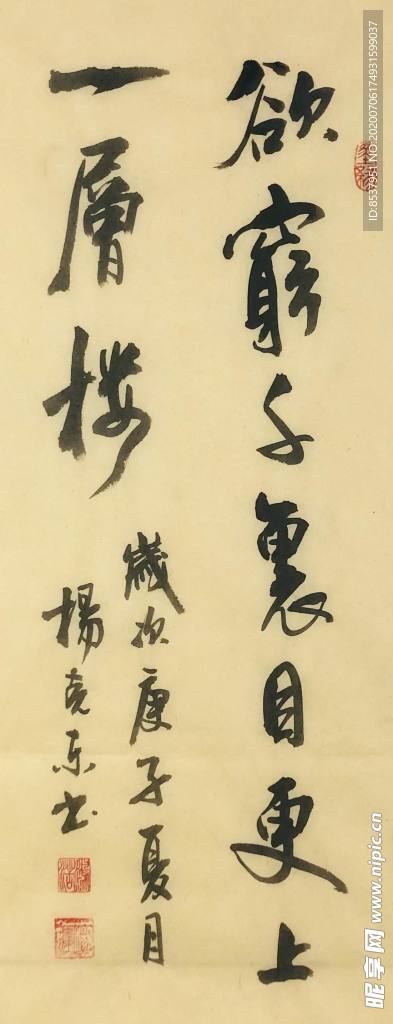 欲窮千裏目更上
一層樓
歲次庚子夏
楊克东书
ID:8537951 NO:20200706174931599037
昵享网 www.nipic.cn